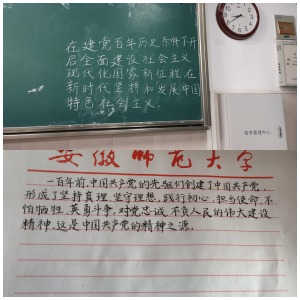 在建党百年历史条件下开
启全面建设社会主义
现代化国家新征程在
新时代坚持和发展中国
特色社会主义.
信息管理中心
安徽师范大学
一百年前,中国共产党的先驱们创建了中国共产党,
形成了坚持真理、坚守理想、践行初心、担当使命,不
怕牺牲、英勇斗争,对党忠诚、不负人民的伟大建设
精神,这是中国共产党的精神之源。